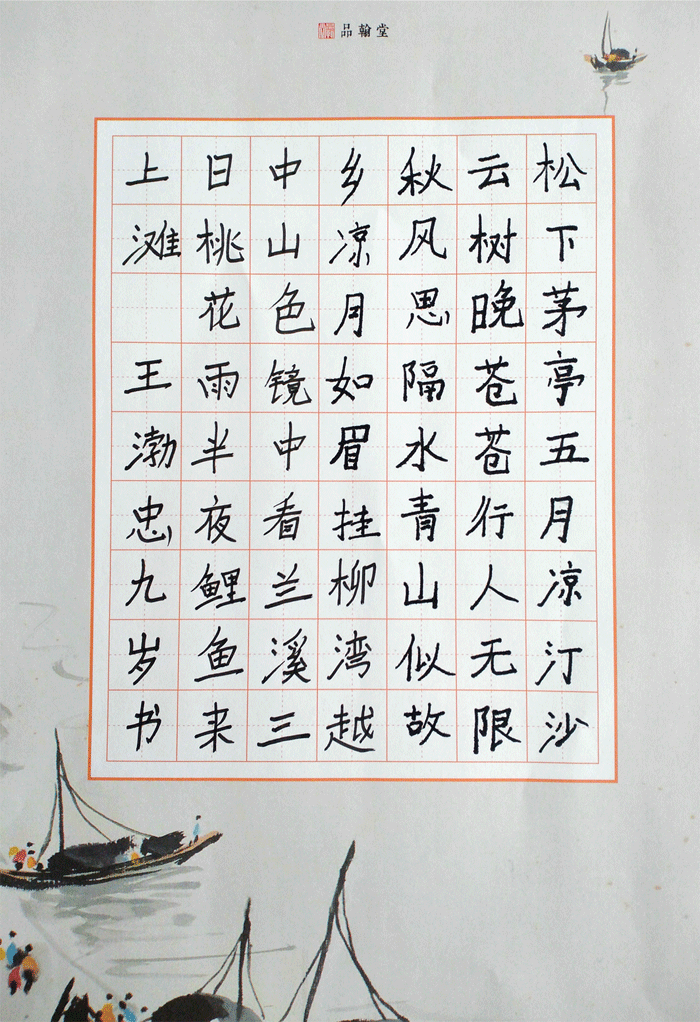 品翰堂
松下茅亭五月凉汀沙
云树晚苍苍行人无限
秋风思隔水青山似故
乡凉月如眉挂柳湾越
中山色镜中看兰溪三
日桃花雨半夜鲤鱼来
上滩 王渤忠九岁书